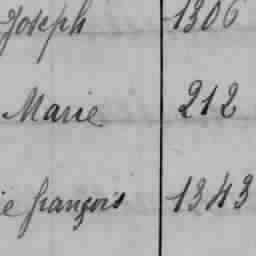 Joseph 1306
Marie 212
ie françois 1343